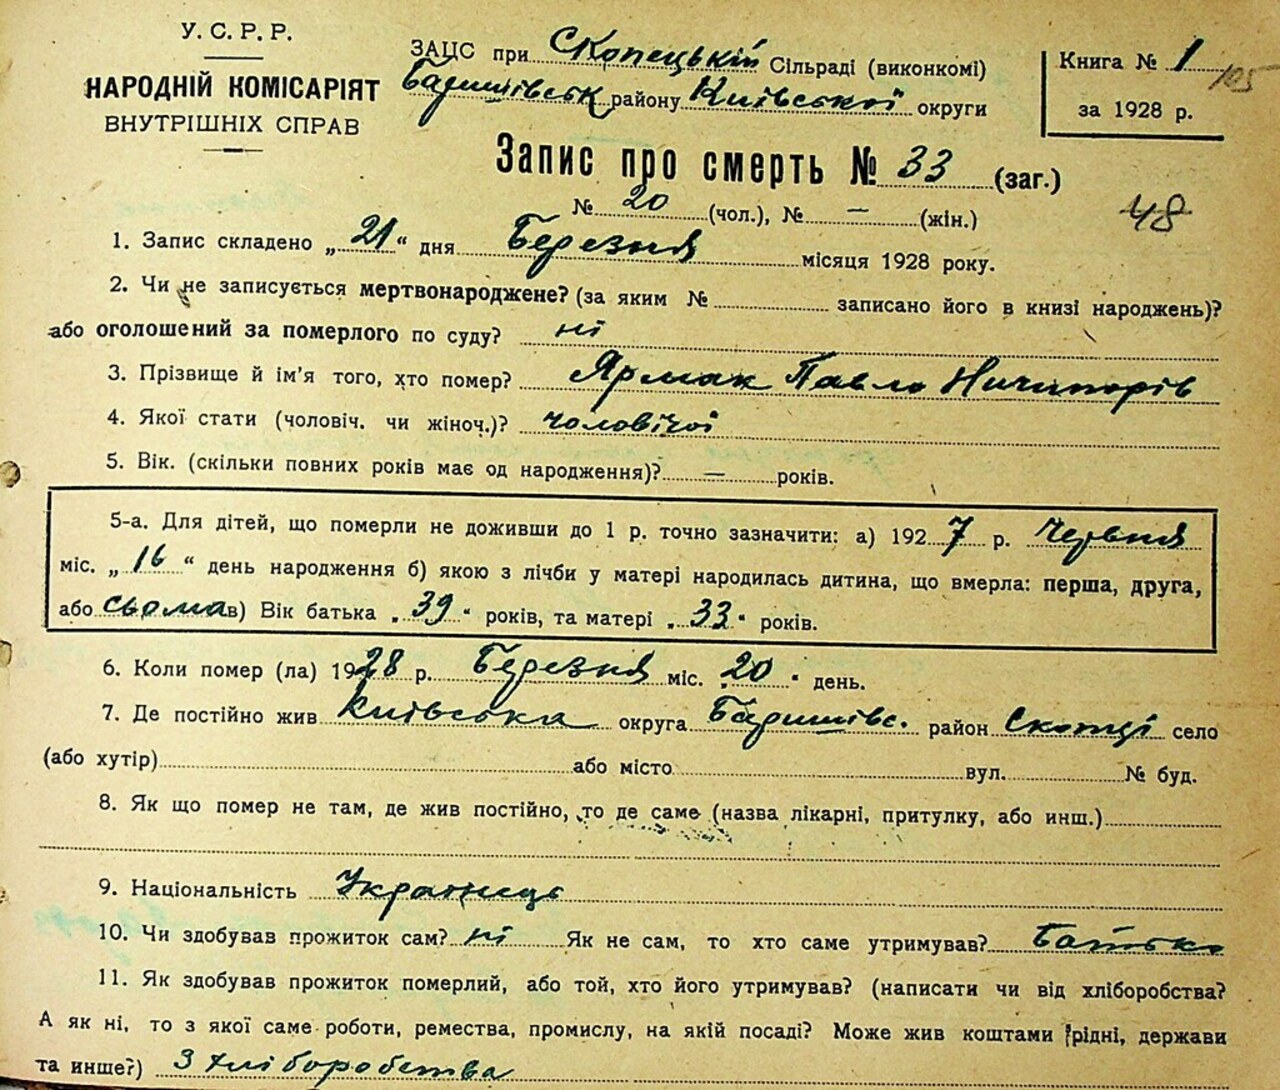 У. С. Р. Р.
НАРОДНІЙ КОМІСАРІЯТ
ВНУТРІШНІХ СПРАВ
ЗАЦС при Скопецькій Сільраді (виконкомі)
Баришівськ району Київської округи
Книга № 1
105
за 1928 р.
Запис про смерть № 33 (заг.)
№ 20 (чол.), № — (жін.)
48
1. Запис складено „ 21 “ дня Березня місяця 1928 року.
2. Чи не записується мертвонароджене? (за яким № записано його в книзі народжень)?
або оголошений за померлого по суду? ні
3. Прізвище й ім’я того, хто помер? Ярмак Павло Ничипорів
4. Якої стати (чоловіч. чи жіноч.)? чоловічої
5. Вік. (скільки повних років має од народження)? — років.
5-а. Для дітей, що померли не доживши до 1 р. точно зазначити: а) 1927 р. Червня
міс. „ 16 “ день народження б) якою з лічби у матері народилась дитина, що вмерла: перша, друга,
або сьома в) Вік батька „ 39 “ років, та матері „ 33 “ років.
6. Коли помер (ла) 1928 р. Березня міс. „ 20 “ день.
7. Де постійно жив Київська округа Баришівс. район Скопці село
(або хутір) або місто вул. № буд.
8. Як що помер не там, де жив постійно, то де саме (назва лікарні, притулку, або инш.)
9. Національність Українець
10. Чи здобував прожиток сам? ні Як не сам, то хто саме утримував? Батько
11. Як здобував прожиток померлий, або той, хто його утримував? (написати чи від хліборобства?
А як ні, то з якої саме роботи, ремества, промислу, на якій посаді? Може жив коштами рідні, держави
та инше?) З хліборобства